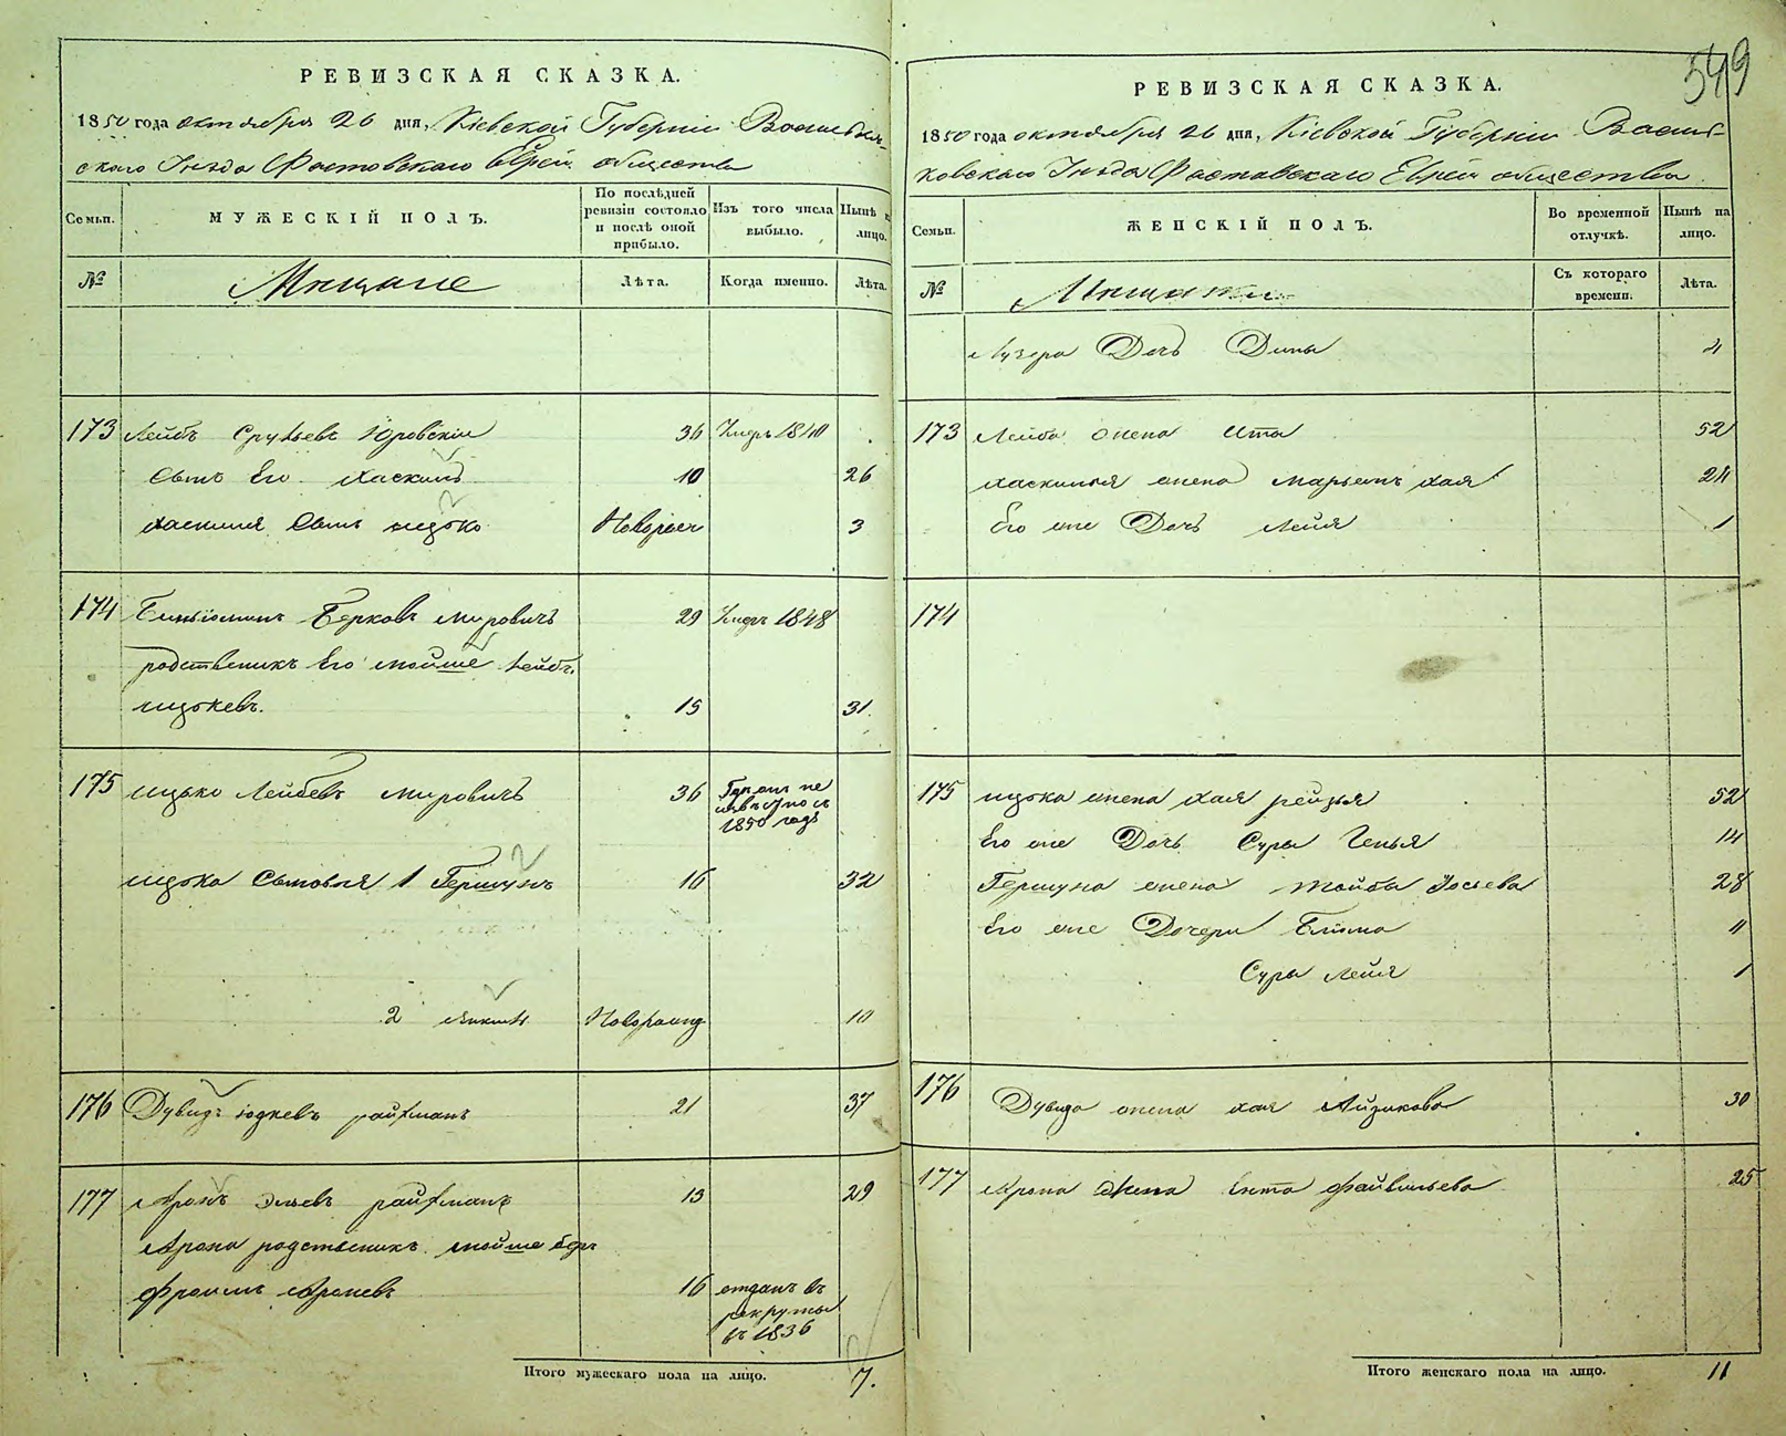 549
РЕВИЗСКАЯ СКАЗКА.
1850 года октября 26 дня, Кіевской Губерніи Василь-
скаго Уезда Фастовскаго Еврей. общества
Семьи.
МУЖЕСКІЙ ПОЛЪ.
По послѣдней ревизіи состояло и послѣ оной прибыло.
Изъ того числа выбыло.
Нынѣ на лицо.
№
Мещане
Лѣта.
Когда именно.
Лѣта.
173 Лейбъ Срульевъ Юровскій 36 Умеръ 1840
Сынъ Его Хаскиль 10 26
Хаскиля Сынъ Ицько Новорож 3
174 Биньюминъ Берковъ Мировичъ 29 Умеръ 1848
родственикъ Его Мойше Лейбъ
Ицьковъ. 15 31.
175 Ицько Лейбовъ Мировичъ 36
1850 годъ
Ицька Сыновья 1 Гершунъ 16 32
2 Новорожд 10
176 Дувидъ Юдковъ Райхманъ 21 37
177 Аронъ Эльевъ Райхманъ 13 29
Арона родственикъ Мойше Бер
Фроимъ Ароновъ 16 отданъ въ
рекруты
въ 1836
Итого мужескаго пола на лицо. 7.
РЕВИЗСКАЯ СКАЗКА.
1850 года октября 26 дня, Кіевской Губерніи Василь-
ковскаго Уезда Фастовскаго Еврей общества.
Семьи.
ЖЕНСКІЙ ПОЛЪ.
Во временной отлучкѣ.
Нынѣ на лицо.
№
Мещанки
Съ котораго времени.
Лѣта.
Дочь Дины 4
173 Лейба жена Ита 52
Хаскиля жена Марьямъ Хая 24
Его же Дочь Лейя 1
174
175 Ицька жена Хая Рейзя 52
Его же Дочь Сура Генья 14
Гершуна жена Тойба Иосьева 28
Его же Дочери Блюма 4
Сура Лейя 1
176 Дувида жена Хая Айзикова 30
177 Арона Жена Ента Файвильева 25
Итого женскаго пола на лицо. 11